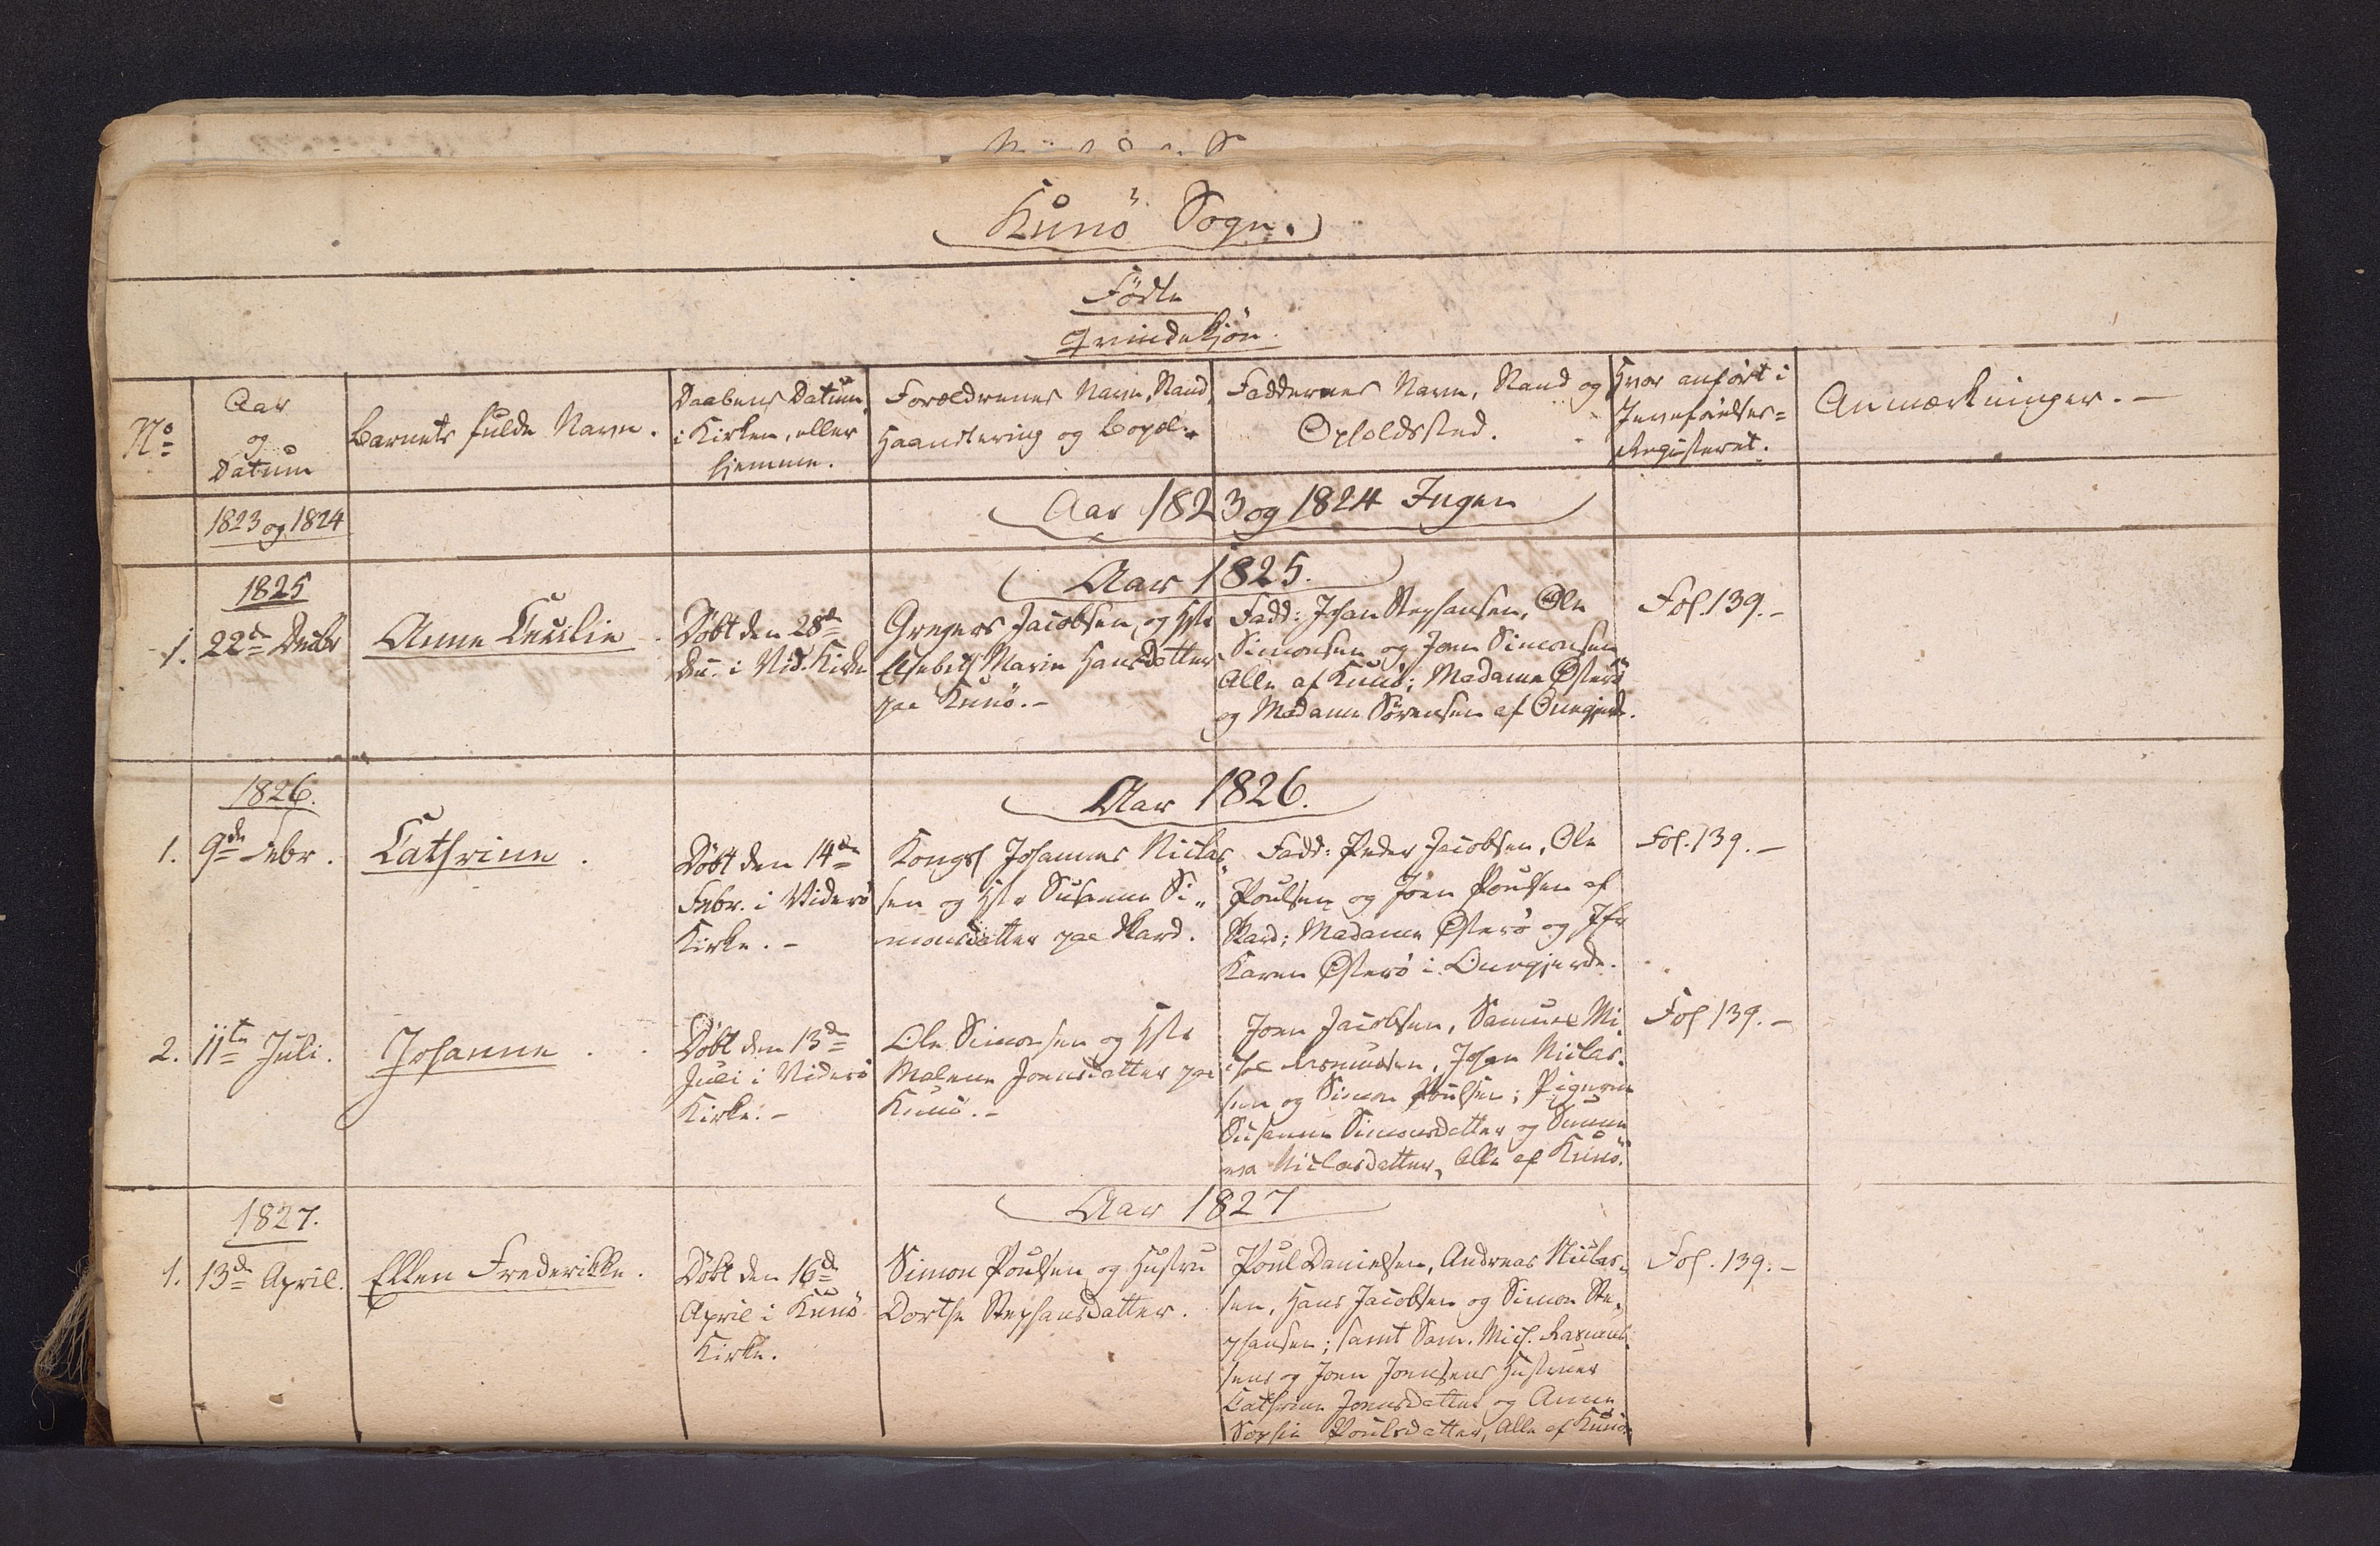 Kunö Sogn.
Födte
Qvindekjön.
No
Aar
og
Datum
Barnets fulde Navn.
Daabens Datum,
i Kirken, eller
hjemme.
Forældrenes Navn, Stand,
Haandtering og Bopæl.
Faddernes Navn, Stand og
Opholdssted.
Hvor anfört i
Jevnförelses-
Registeret.
Anmærkninger. -
1823 og 1824
Aar 1823 og 1824 Ingen
1825
Aar 1825.
1.
22de Decbr
Anne Cecilie
Döbt den 28de
Dec. i Vid. Kirke
Gregers Jacobsen, og Hstr
Elsebeth Marie Hansdatter
paa Kunö. -
Fadd: Johan Stephansen, Ole
Simonsen og Joen Simonsen
Alle af Kunö; Madame Österö
og Madame Sörensen af Onegjerde.
Fol. 139. -
1826.
Aar 1826.
1.
9de Febr.
Cathrine.
Döbt den 14de
Febr. i Viderö
Kirke. -
Kongsf. Johannes Niclas
sen og Hstr Susanne Si„
monsdatter paa Skard.
Fadd: Peder Jacobsen, Ole
Poulsen og Joen Poulsen af
Skard; Madame Österö og Jfr
Karen Österö i Onegjerde.
Fol. 139. -
2.
11te Juli.
Johanne
Döbt den 13de
Juli i Viderö
Kirke. -
Ole Simonsen og Hstr
Malene Joensdatter paa
Kunö. -
Joen Jacobsen, Samuel Mi„
chel Rasmussen, Johan Niclas„
sen og Simon Poulsen; Pigerne
Susanne Simonsdatter og
Niclasdatter, Alle af Kunö.
Fol. 139. -
1827.
Aar 1827
1.
13de April.
Ellen Frederikke.
Döbt den 16de
April i Kunö
Kirke.
Simon Poulsen og Hustru
Dorthe Stephansdatter.
Poul Danielsen, Andreas Niclas„
sen, Hans Jacobsen og Simon Ste„
phansen; samt Sam. Mich. Rasmus
sens og Joen Joensens Hustruer
Cathrine Joensdatter og Anne
Sophie Poulsdatter, Alle af Kunö.
Fol. 139. -